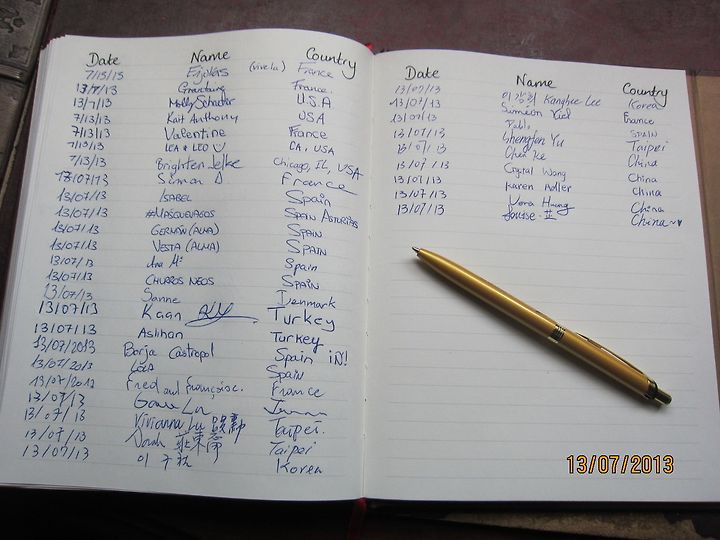 Date Name Country
7/13/13 Enjolras (vive la) France
13/7/13 Grantaire France
13/7/13 Molly Schrader USA
7/13/13 Kait Anthony USA
7/13/13 Valentine France
7/13/13 LEA & LEO CA, USA
7/13/13 Brighten Chicago, IL, USA
13/07/13 Simon D. France
13/07/13 ISABEL Spain
13/07/13 SPAIN ASTURIAS
13/07/13 GERMÁN (ALMA) SPAIN
13/07/13 VESTA (ALMA) SPAIN
13/07/13 Ana Mª Spain
13/07/13 CHURROS NEOS SPAIN
13/07/13 Sanne Denmark
13/07/13 Kaan Turkey
13/07/13 Aslıhan Turkey
13/07/2013 Borja Castropol Spain
13/07/2013 Lola Spain
13/07/2013 Fred and Françoise. France
13/07/13
13/07/13 Vivianna Lu Taipei.
13/07/13 Taipei
13/07/13 Korea
Date Name Country
13/07/13 Kanghee Lee Korea
13/07/13 Siméon France
13/07/13 Pablo SPAIN
13/07/13 Shengfen Yu Taipei
13/07/13 Chen Ke China
13/07/13 Crystal Wang China
13/07/13 Karen Adler China
13/07/13 Huang China
China
13/07/2013